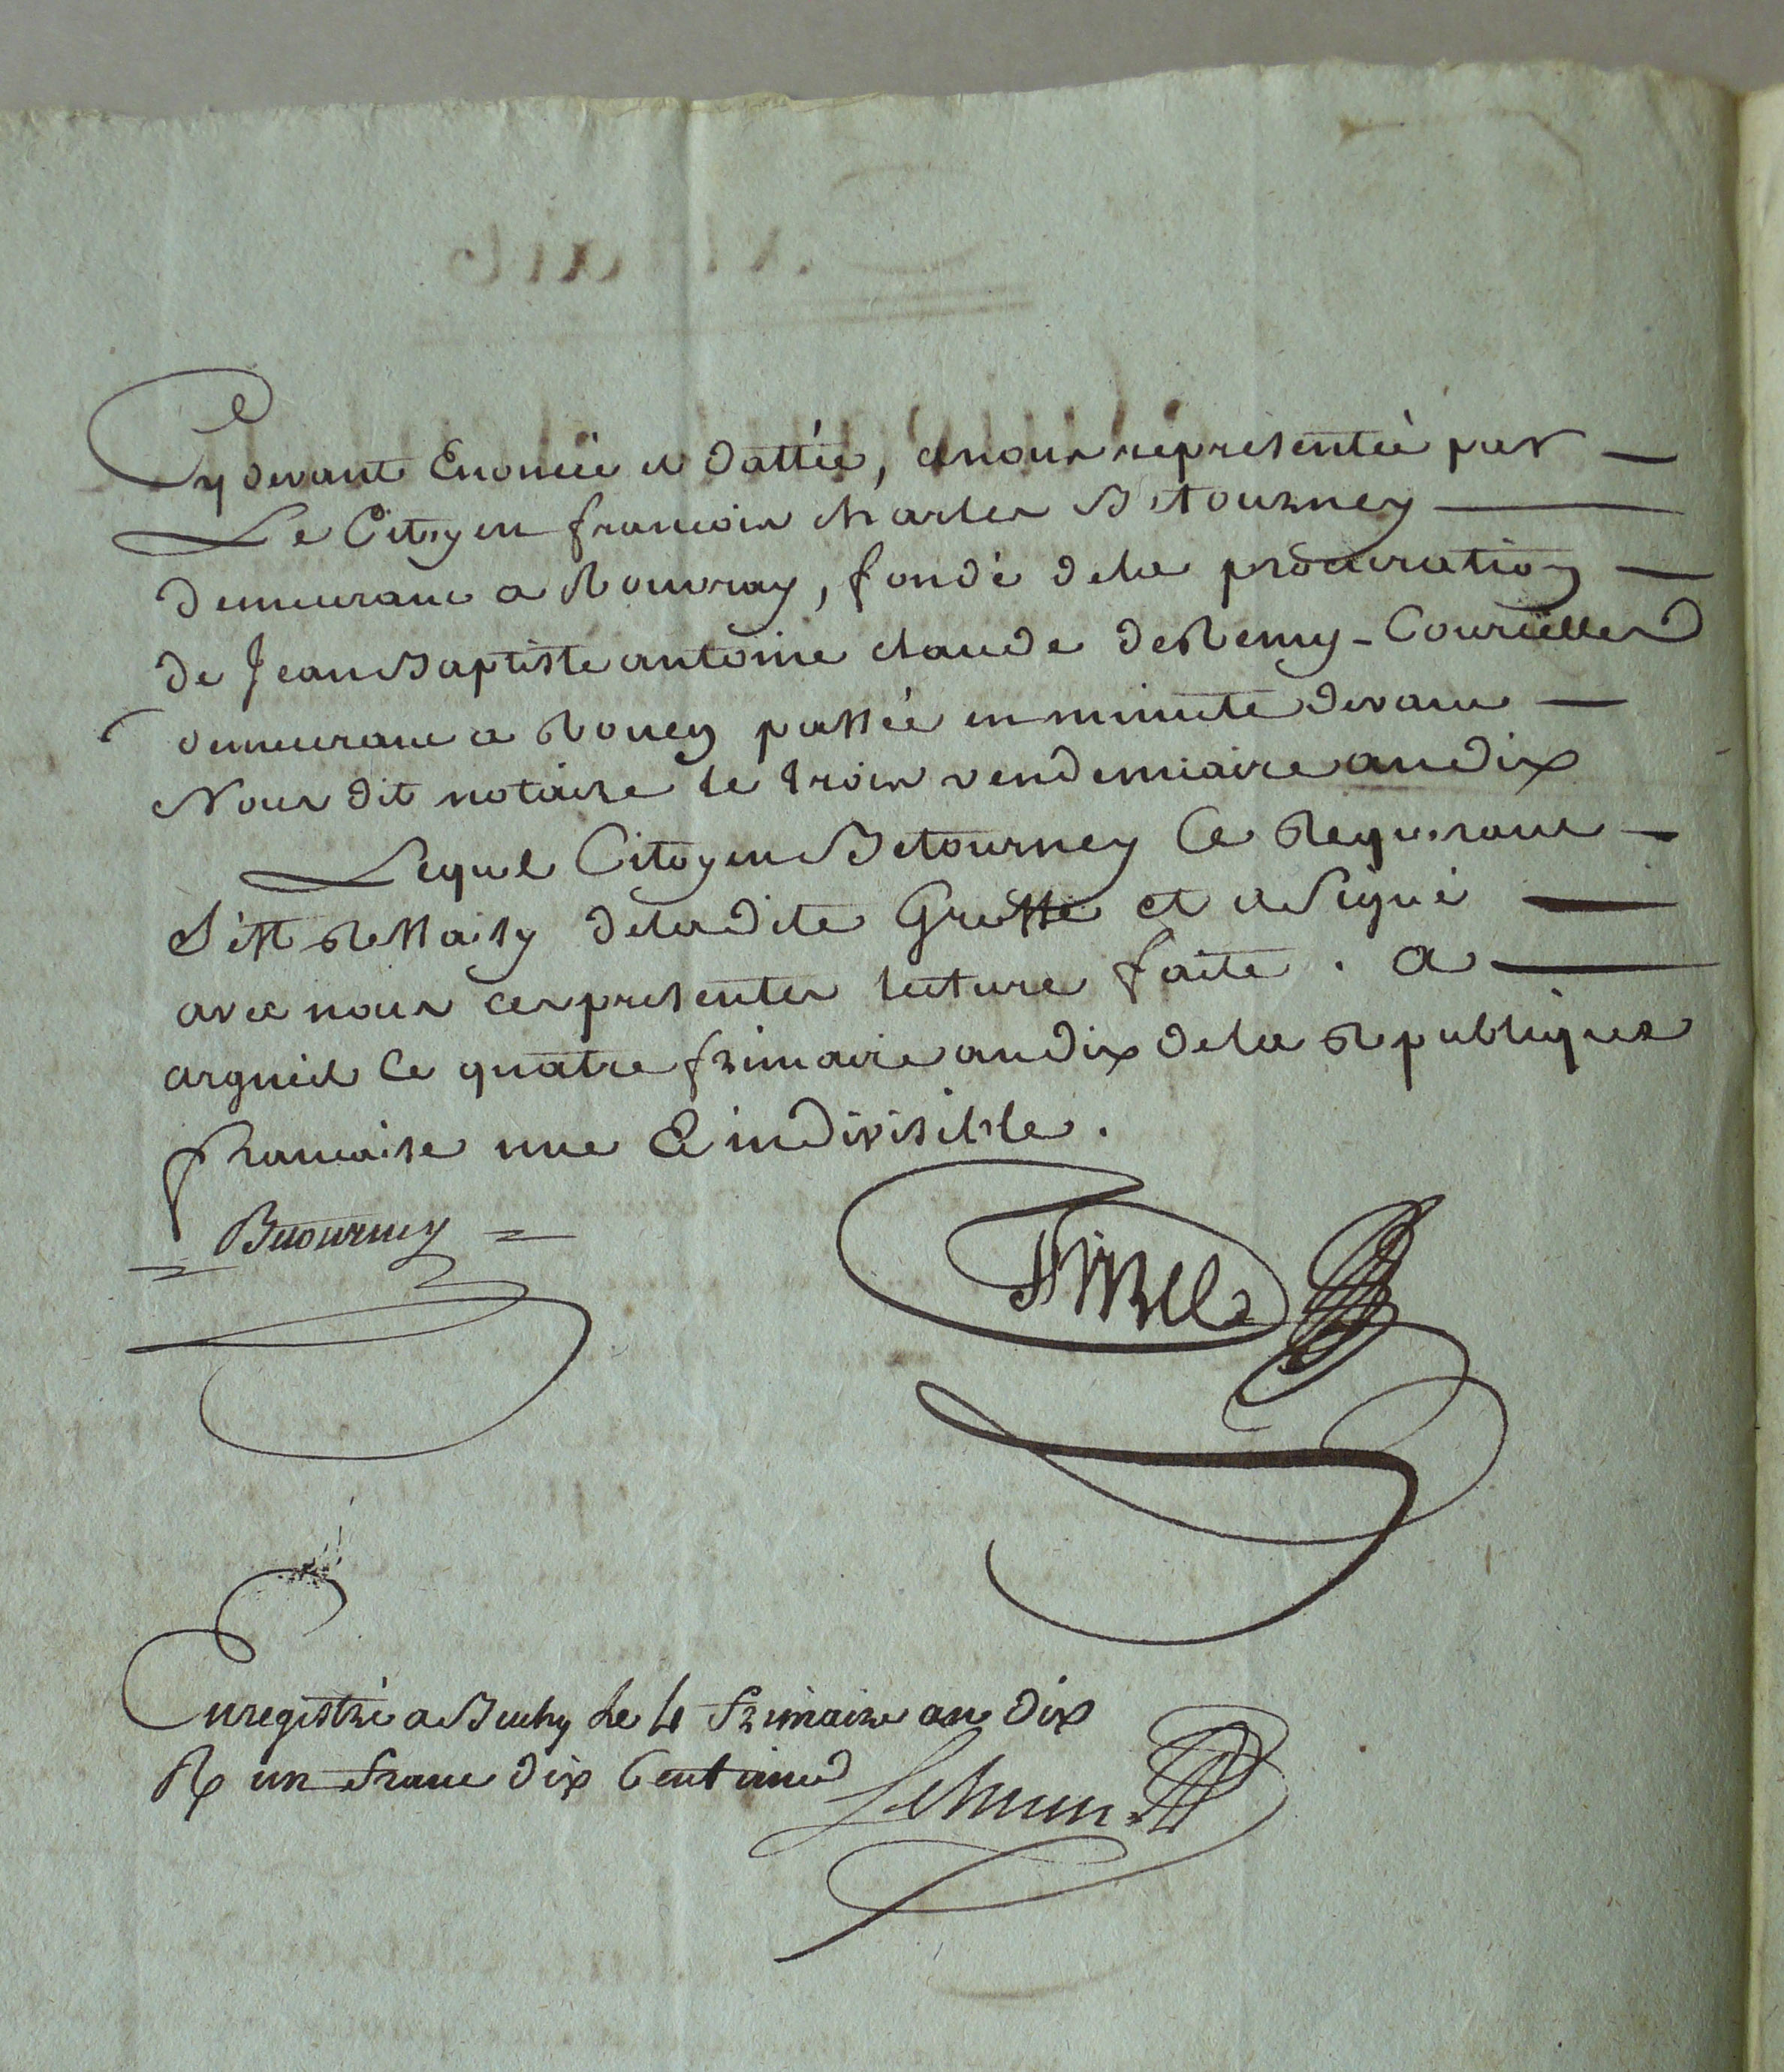 Cy devant Enoncée et dattée, a nous représentée par
Le Citoyen francois charles Betourney
demeurant a Rouvray, fondé dela procuration
de Jean Baptiste antoine claude de Remy - Courcelles
demeurant a Rouen passée en minute devant
Nous dit notaire le trois vendemiaire an dix
Lequel Citoyen Betourney Ce Requerant
S'est Ressaisy deladite Grosse et a Signé
avec nous ces presentes lecture faite . a
argueil Ce quatre frimaire an dix dela Republique
francaise une & indivisible .
Betourney
Enregistré a Buchy le 4 frimaire an dix
R un franc dix Centimes